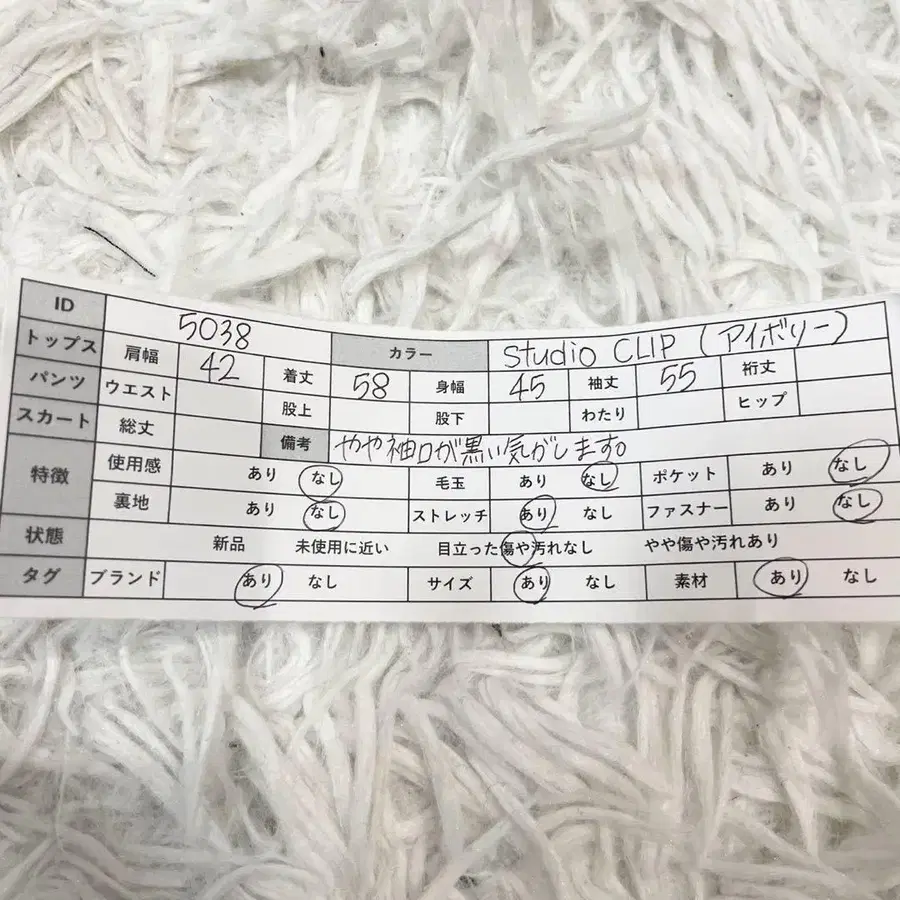 ID 5038 カラー studio CLIP (アイボリー)
トップス 肩幅 42 着丈 58 身幅 45 袖丈 55 裄丈
パンツ ウエスト 股上 股下 わたり ヒップ
スカート 総丈 備考 やや袖口が黒い気がします。
特徴 使用感 あり なし 毛玉 あり なし ポケット あり なし
裏地 あり なし ストレッチ あり なし ファスナー あり なし
状態 新品 未使用に近い 目立った傷や汚れなし やや傷や汚れあり
タグ ブランド あり なし サイズ あり なし 素材 あり なし